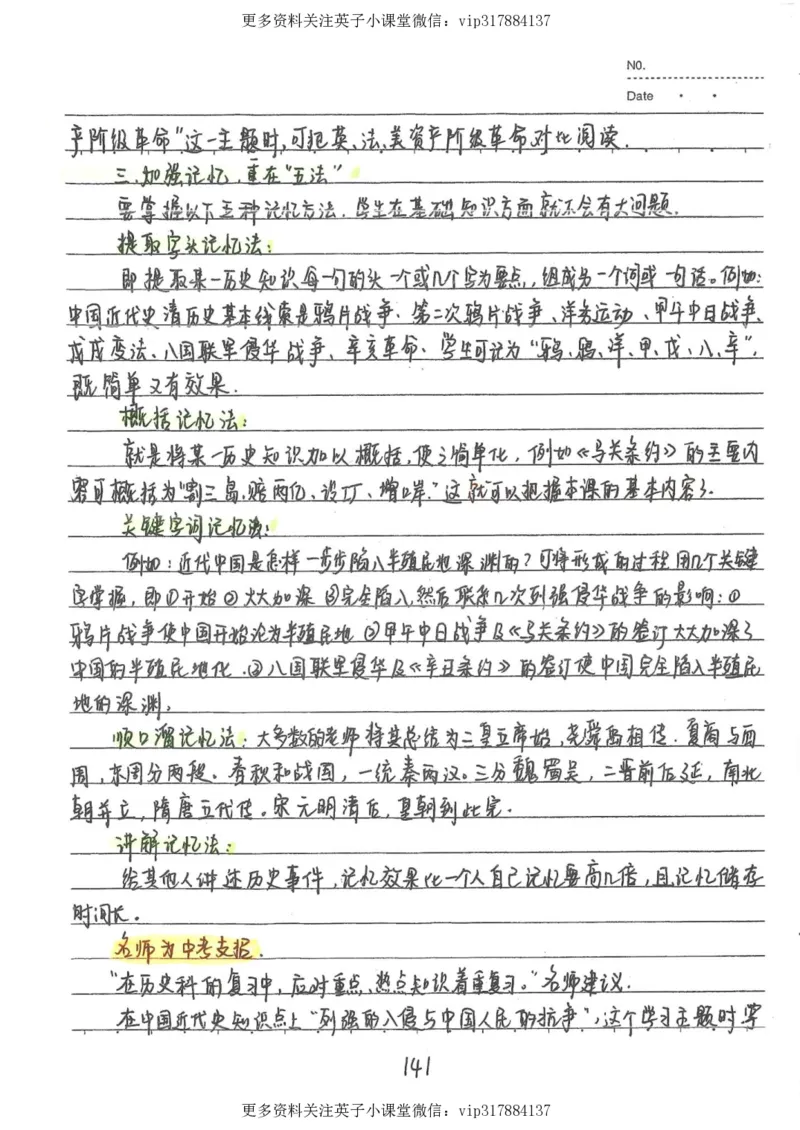 更多资料关注英子小课堂微信：vip317884137
NO.
Date
产阶级革命"这一主题时,可把英、法、美资产阶级革命对比阅读.
三.加强记忆,重在"五法"
要掌握以下五种记忆方法,学生在基础知识方面就不会有大问题.
提取字头记忆法：
即提取某一历史知识每一句的头一个或几个字为要点,组成另一个词或一句话。例如:
中国近代史清历史基本线索是鸦片战争、第二次鸦片战争、洋务运动、甲午中日战争、
戊戌变法、八国联军侵华战争、辛亥革命、学生可记为"鸦、鸦、洋、甲、戊、八、辛",
既简单又有效果.
概括记忆法：
就是将某一历史知识加以概括,使之简单化,例如《马关条约》的主要内
容可概括为"割三岛、赔两亿、设工厂、增口岸."这就可以把握本课的基本内容了.
关键字词记忆法：
例如：近代中国是怎样一步步陷入半殖民地深渊的？可将形成的过程用几个关键
字掌握,即①开始②大大加深③完全陷入,然后联系几次列强侵华战争的影响：①
鸦片战争使中国开始沦为半殖民地②甲午中日战争及《马关条约》的签订大大加深了
中国的半殖民地化.③八国联军侵华及《辛丑条约》的签订使中国完全陷入半殖民
地的深渊,
顺口溜记忆法：大多数的老师将其总结为三皇五帝始,尧舜禹相传.夏商与西
周,东周分两段。春秋和战国,一统秦两汉。三分魏蜀吴,二晋前后延,南北
朝并立,隋唐五代传。宋元明清后,皇朝到此完.
讲解记忆法：
给其他人讲述历史事件,记忆效果比一个人自己记忆要高几倍,且记忆储存
时间长。
名师为中考支招.
"在历史科的复习中,应对重点、热点知识着重复习。"名师建议.
在中国近代史知识点上"列强的入侵与中国人民的抗争",这个学习主题时学
141
更多资料关注英子小课堂微信：vip317884137